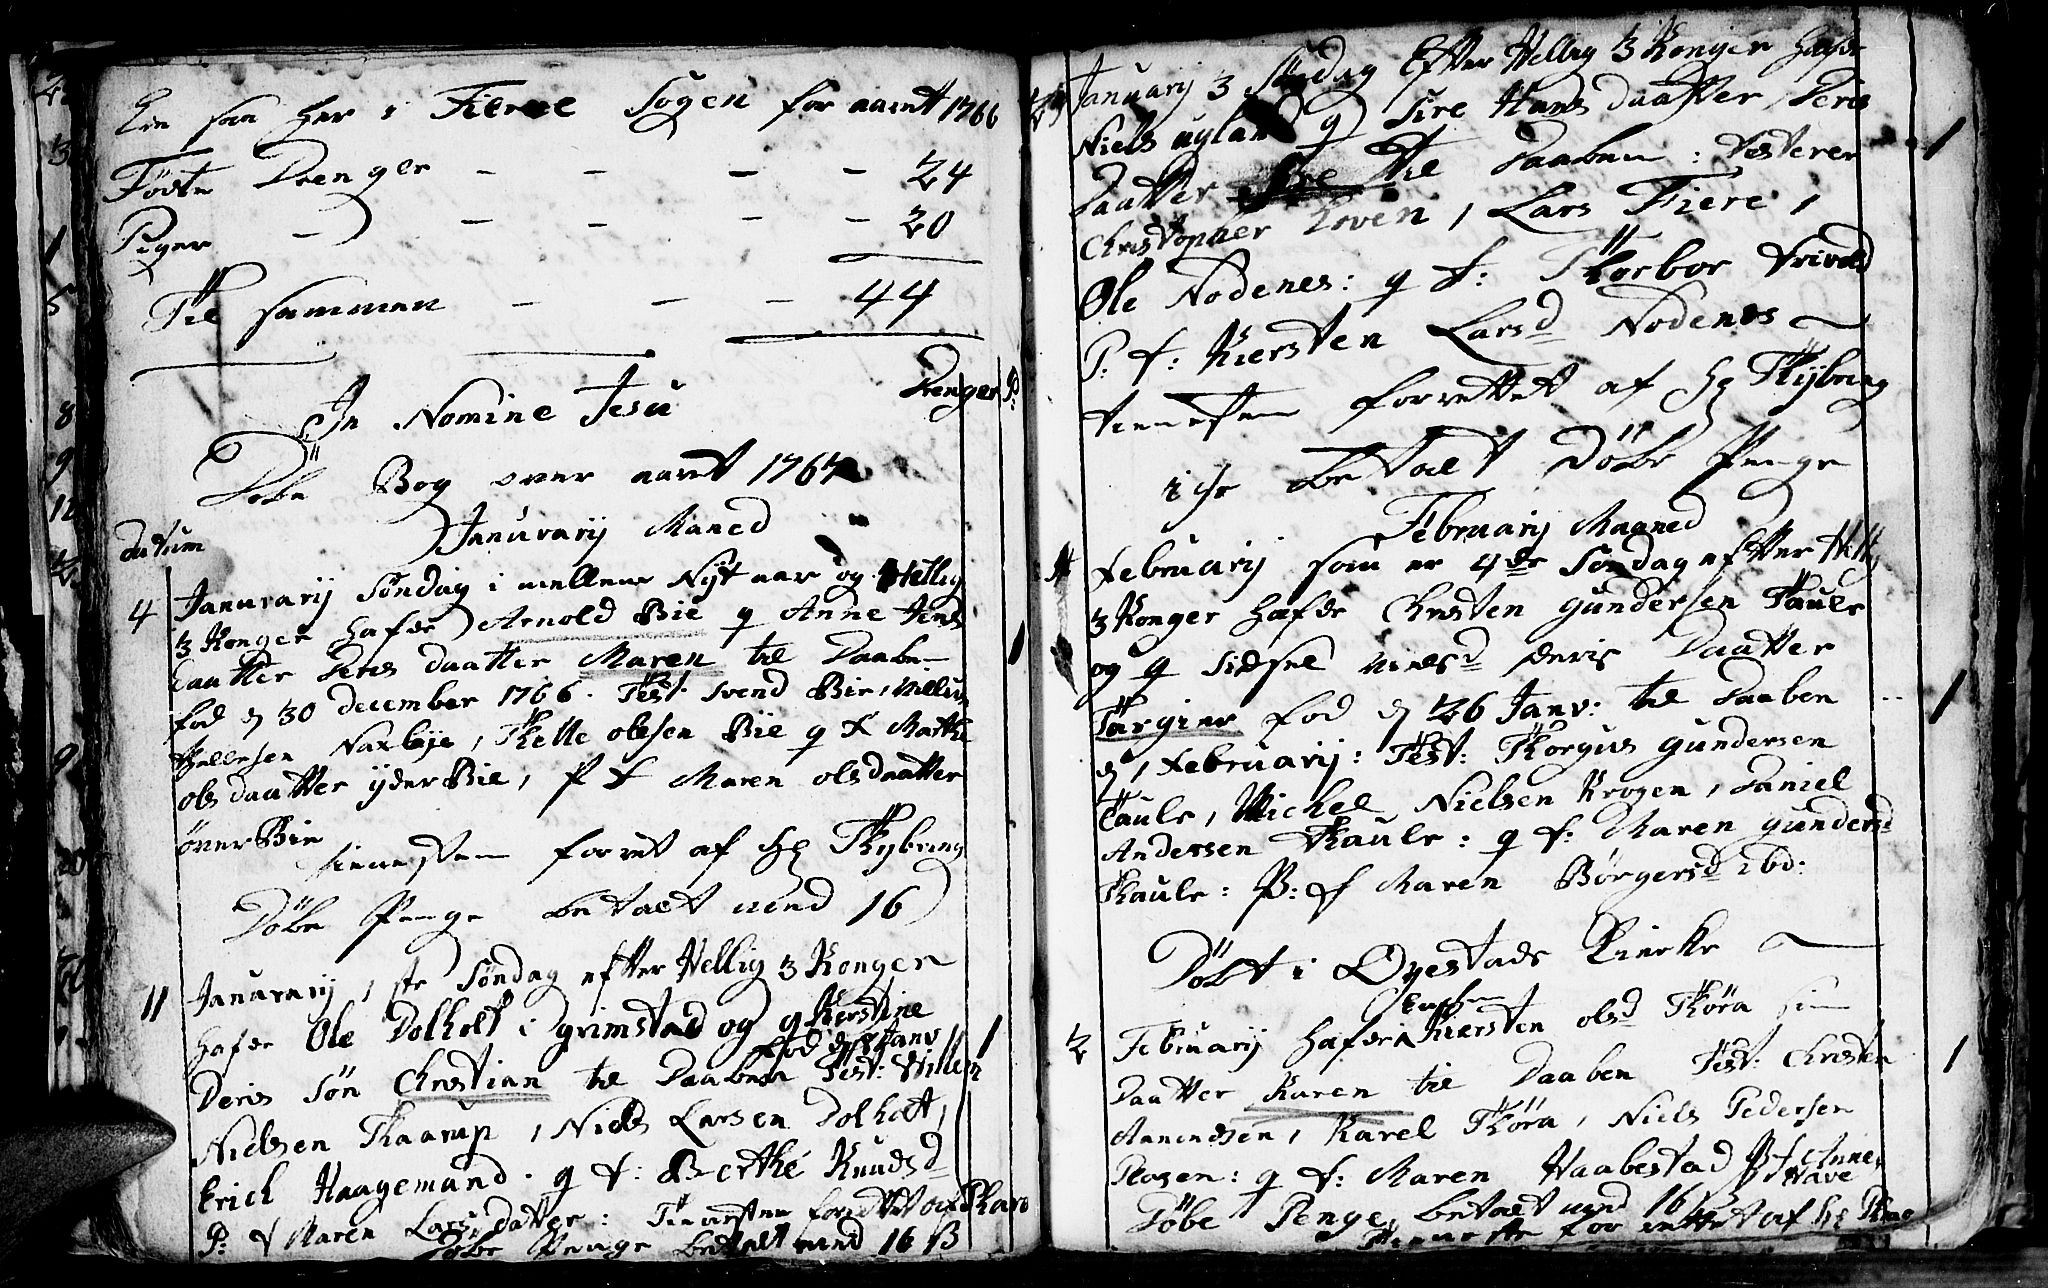 Ere saa her i Fierre Sogen for aaret 1766
Födte Drenger - - - - 24
Piger - - - - - 20
Til sammen - - - 44
Drenger P:
In Nomine Jesu
Döbe Bog over aaret 1767
Januvarij Maned
Datum
4 Januvarij Söndag i mellem Nyt aar og Hellig
3 Konger hafde Arnold Bie q Anne Jens
daatter deris daatter Maren til Daaben
fod d 30 december 1766. Test: Svend Bie,
Kellesen Naxbye, Kette olesen Bie q f Marthe
ols daatter yderBie, P f Maren olsdaatter
överBie
tienesten forret af Hr Thybring
Döbe Penge betalt med 16
11 Januvarij 1ste Söndag efter Hellig 3 Konger
hafde Ole Dolholt i grimstad og q Kerstine
fod d 8 Janv
Deris sön Christian til Daaben Test: Villem
Nielsen Kaarup, Niels Larsen Dolholt,
Erich Haagemand. q f: Berthe Knudsd
P: f Maren Larsdatter: Tienesten forettet af
Döbe Penge betalt med 16 ß
25 Januarij 3 Söndag Efter Hellig 3 Konger hafde
Niels uglan q Sire Hans daatter, Deris
Daatter til Daaben: Testerer
Christopher Loven, Lars Fiere,
Ole Nodenes: q f: Thorbor Frivold
P: f: Kiersten Larsd Nodenes
tienesten forrettet af Hr Thybring
ike betalt Döbe Penge
Februarij Maaned
1 Februarij som er 4de Söndag efter Hellig
3 Konger hafde Christen gundersen Skaule
og q Sidsel Nielsd deris Daatter
Targine fod d 26 Janv: til Daaben
d 1 Februarij: Test: Thorgius gundersen
Skaule, Michel Nielsen Krogen, Daniel
Andersen Skaule: q f: Maren gundersd
Skaule: P: f Maren Börgersd ibd:
Döbt i Öyestads Kirke
2 Februarij hafde Kiersten olsd Thöra sin
Daatter Karen til Daaben Test: Christen
Anendsen, Karel Thöra, Niels Pedersen
Rosen: q f: Maren Haabestad P f Anne
Have
Döbe Penge betalt med 16
Tieneste forrettet af Hr